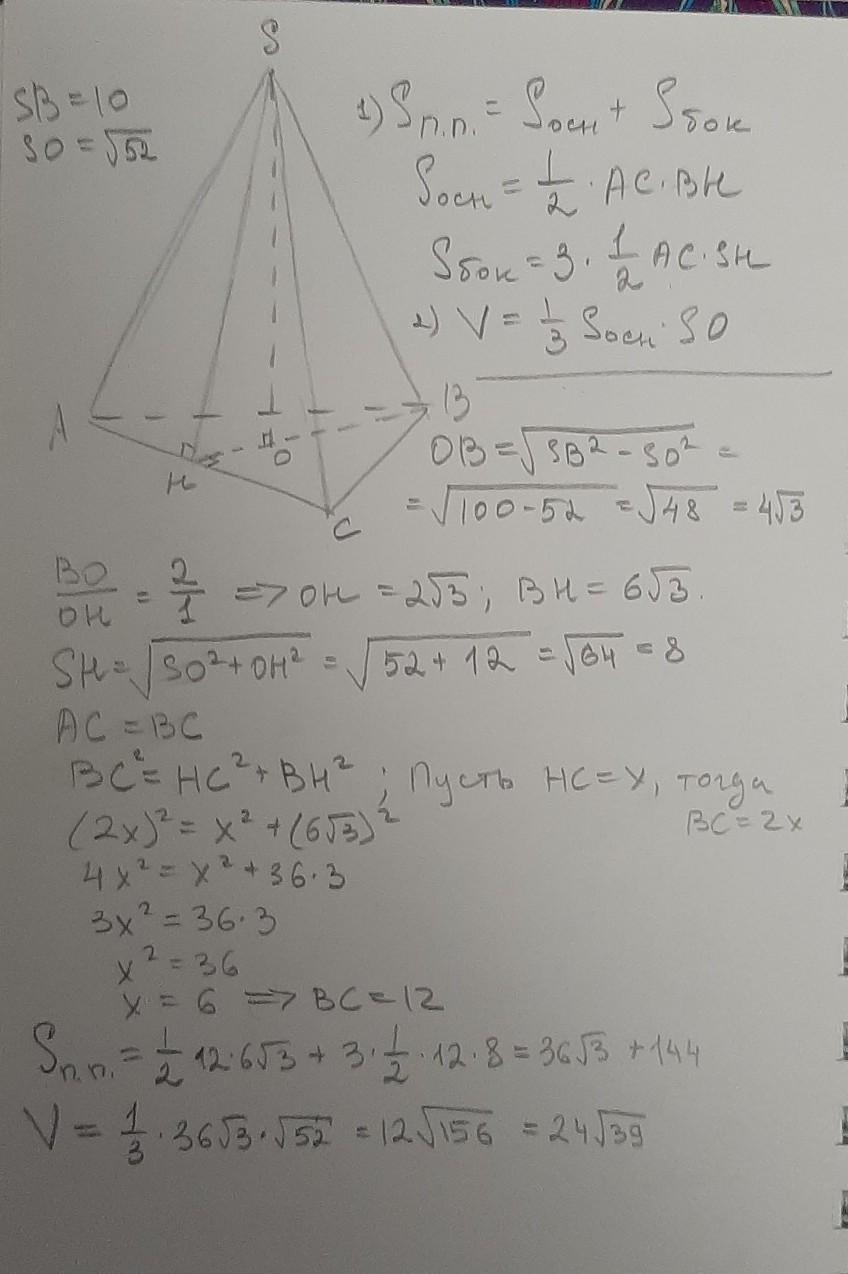 S
SB = 10
SO = √52
1) Sп.п. = Sосн + Sбок
Sосн = 1/2 · AC · BH
Sбок = 3 · 1/2 AC · SH
2) V = 1/3 Sосн · SO
A
B
O
H
C
OB = √(SB² - SO²) =
= √(100 - 52) = √48 = 4√3
BO/OH = 2/1 => OH = 2√3; BH = 6√3.
SH = √(SO² + OH²) = √(52 + 12) = √64 = 8
AC = BC
BC² = HC² + BH²; Пусть HC = x, тогда
BC = 2x
(2x)² = x² + (6√3)²
4x² = x² + 36·3
3x² = 36·3
x² = 36
x = 6 => BC = 12
Sп.п. = 1/2 12·6√3 + 3·1/2·12·8 = 36√3 + 144
V = 1/3 · 36√3 · √52 = 12√156 = 24√39